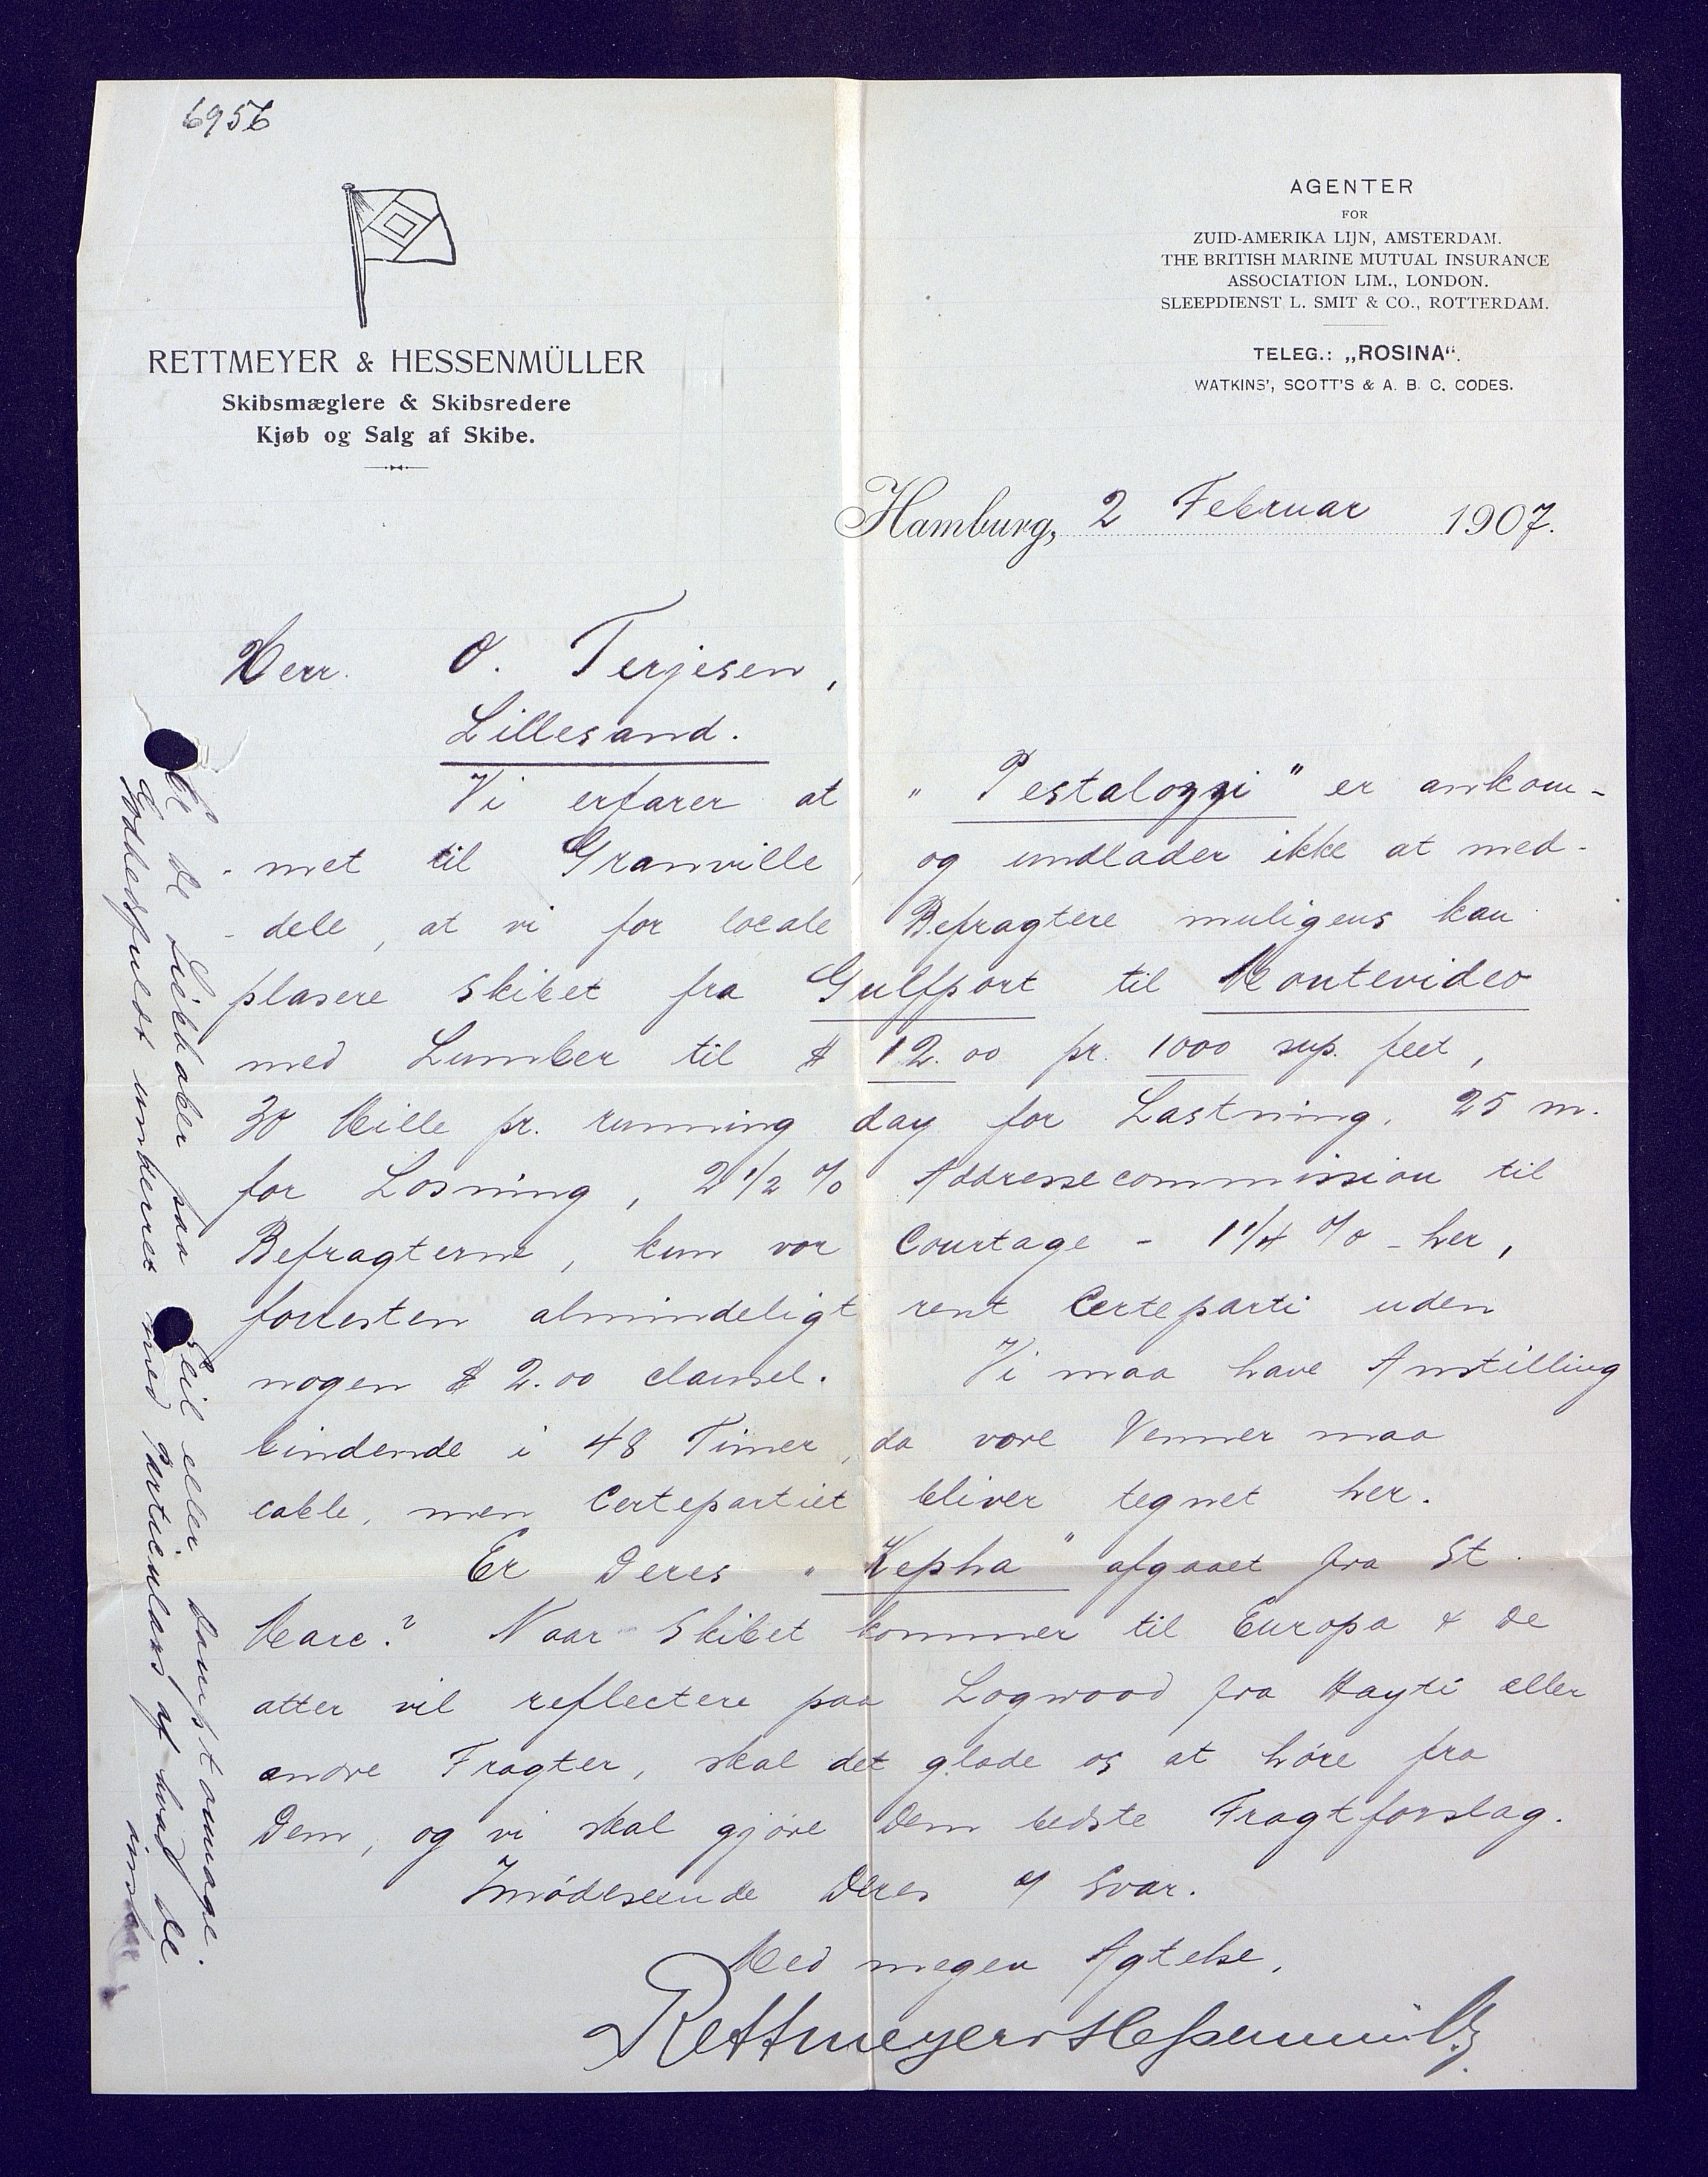 6956
RETTMEYER & HESSENMÜLLER
Skibsmæglere & Skibsredere
Kjøb og Salg af Skibe.
AGENTER
FOR
ZUID-AMERIKA LIJN, AMSTERDAM.
THE BRITISH MARINE MUTUAL INSURANCE
ASSOCIATION LIM., LONDON.
SLEEPDIENST L. SMIT & CO., ROTTERDAM.
TELEG.: „ROSINA“.
WATKINS', SCOTT'S & A. B. C. CODES.
Hamburg, 2 Februar 1907.
Herr. O. Terjesen,
Lillesand.
Vi erfarer at „Pestalozzi" er ankom-
-met til Granville, og undlader ikke at med-
-dele, at vi for locale Befragtere muligens kan
plasere skibet fra Gulfport til Montevideo
med Lumber til $ 12.00 pr. 1000 sup. feet,
30 Mille pr. running day for Lastning, 25 m.
for Losning, 2 1/2 % Addressecommission til
Befragterne, kun vor Courtage - 1 1/4 % - her,
forresten almindeligt rent Certeparti uden
nogen $ 2.00 clausel. Vi maa have Anstilling
bindende i 48 Timer, da vore Venner maa
cable, men Certepartiet bliver tegnet her.
Er Deres „Kepha" afgaaet fra St.
Marc? Naar Skibet kommer til Europa & De
atter vil reflectere paa Logwood fra Hayti eller
andre Fragter, skal det glæde os at høre fra
Dem, og vi skal gjøre Dem bedste Fragtforslag.
Imødeseende Deres Svar.
Med megen Agtelse,
Rettmeyer & Hessenmüller
De Liebhaber paa Seil eller Damptonnage.
Godhedsfuldt underret med Particulars af hvad De
ønsker